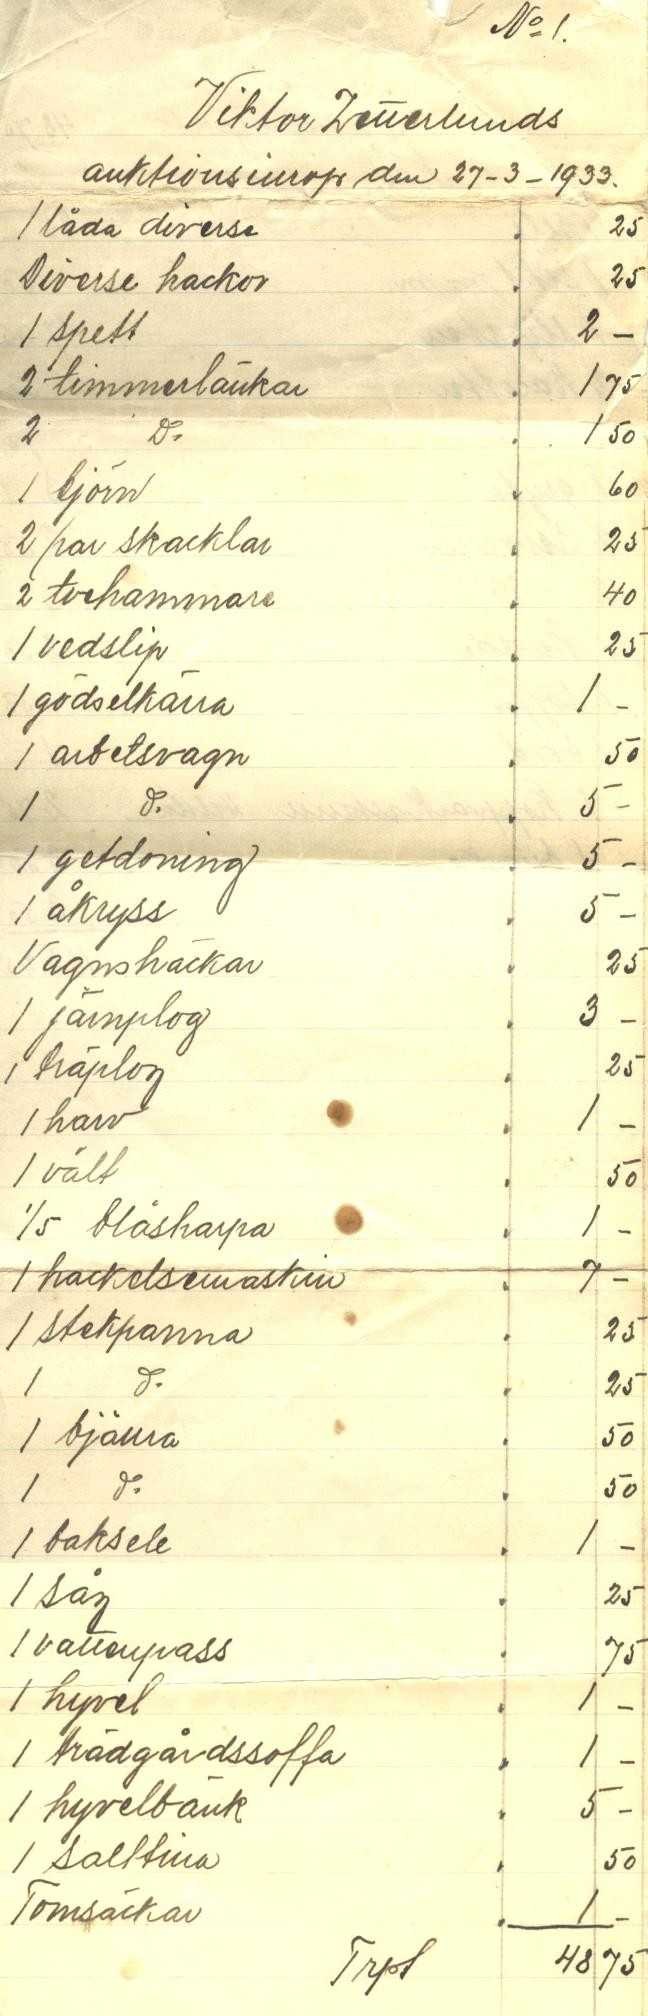 No 1.
Viktor Zetterlunds
auktionsinrop den 27-3-1933.
1 låda diverse . 25
Diverse hackor . 25
1 spett . 2 –
2 timmerlänkar . 1 75
2 D:o . 1 50
1 björn . 60
2 par skacklar . 25
2 tvehammare . 40
1 vedslip . 25
1 gödselkärra . 1 –
1 arbetsvagn . 50
1 d:o . 5 –
1 getdoning . 5 –
1 åkryss . 5 –
Vagnshäckar . 25
1 järnplog . 3 –
1 träplog . 25
1 harv . 1 –
1 vält . 50
1/5 blåsharpa . 1 –
1 hackelsemaskin . 7 –
1 stekpanna . 25
1 d:o . 25
1 bjällra . 50
1 d:o . 50
1 baksele . 1 –
1 såg . 25
1 vattenpass . 75
1 hyvel . 1 –
1 trädgårdssoffa . 1 –
1 hyvelbänk . 5 –
1 salttina . 50
Tomsäckar . 1 –
Trpt 48 75